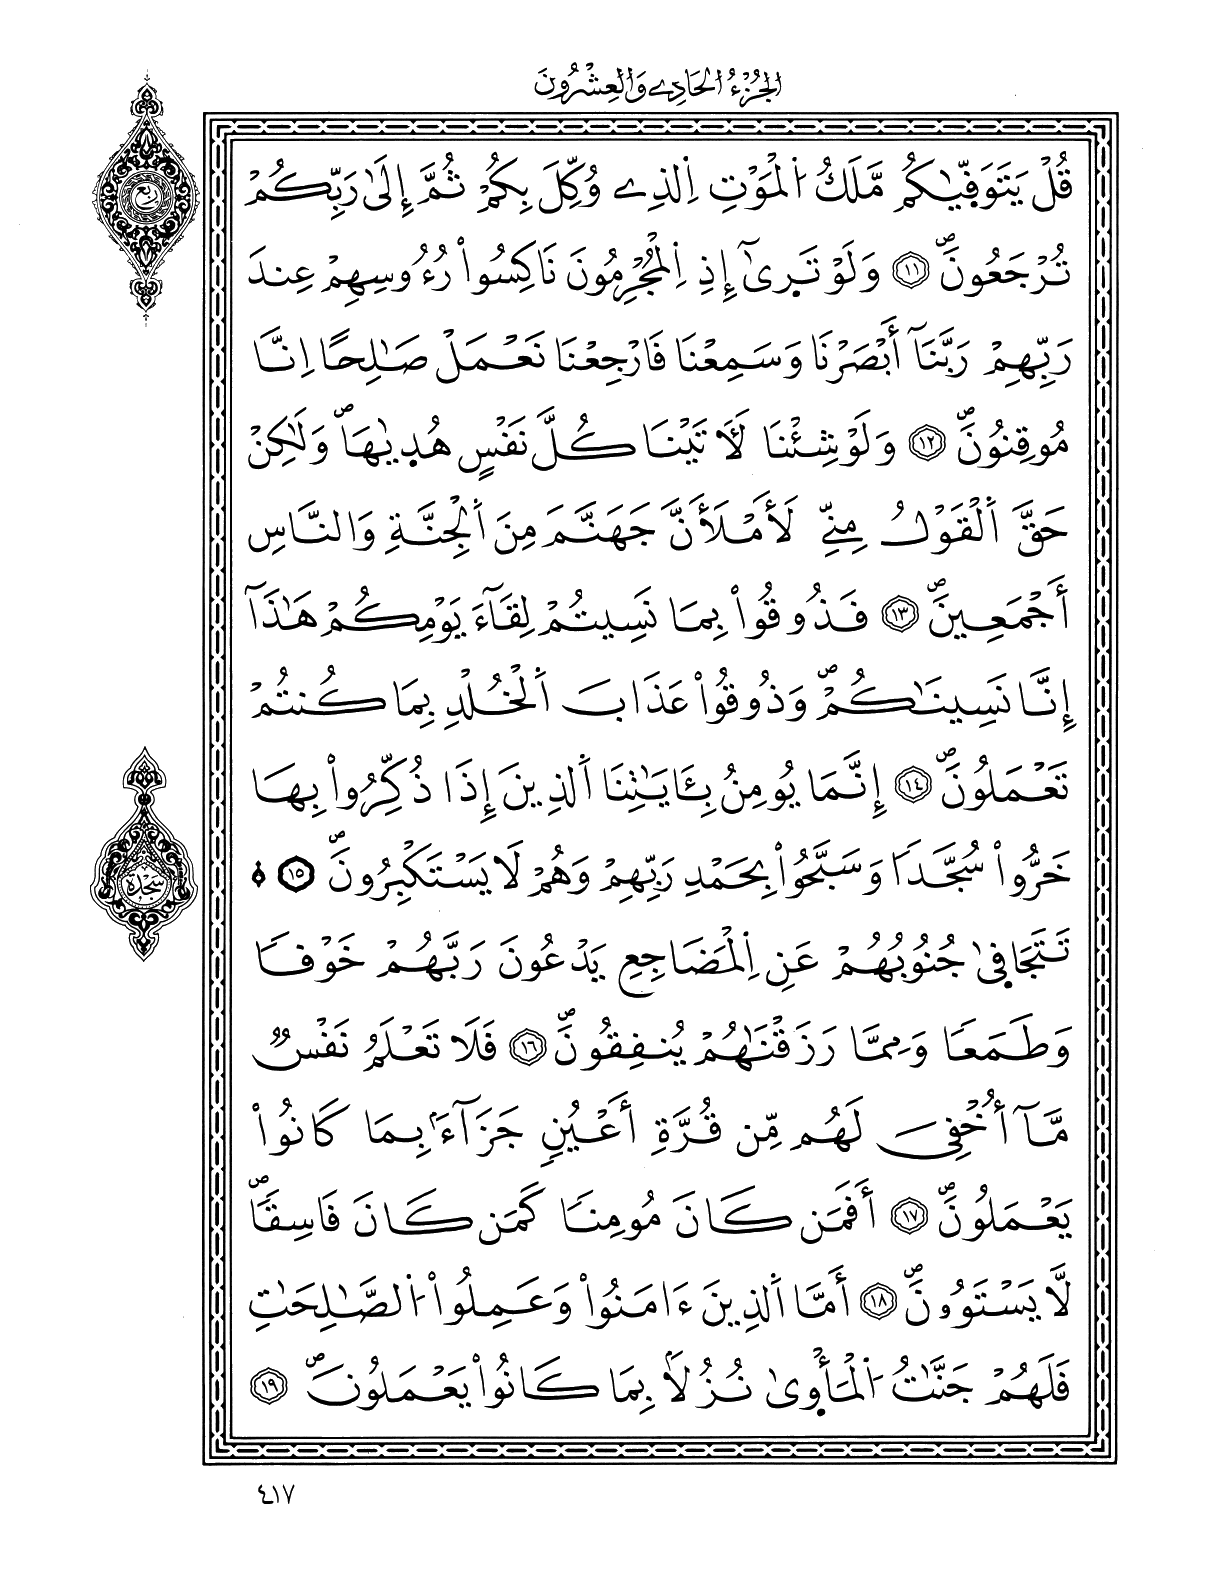 الجُزْءُ الحَادِے وَالعِشْرُونَ
ربع
قُلْ يَتَوَفّۭيٰكُم مَّلَكُ اُ۬لْمَوْتِ اِ۬لذِے وُكِّلَ بِكُمْ ثُمَّ إِلَىٰ رَبِّكُمْ
تُرْجَعُونَۖ ١١ وَلَوْ تَر۪ىٰٓ إِذِ اِ۬لْمُجْرِمُونَ نَاكِسُواْ رُءُوسِهِمْ عِندَ
رَبِّهِمْ رَبَّنَآ أَبْصَرْنَا وَسَمِعْنَا فَارْجِعْنَا نَعْمَلْ صَٰلِحًا اِنَّا
مُوقِنُونَۖ ١٢ وَلَوْ شِئْنَا لَأٓتَيْنَا كُلَّ نَفْسٍ هُد۪يٰهَاۖ وَلَٰكِنْ
حَقَّ اَ۬لْقَوْلُ مِنِّے لَأَمْلَأَنَّ جَهَنَّمَ مِنَ اَ۬لْجِنَّةِ وَالنَّاسِ
أَجْمَعِينَۖ ١٣ فَذُوقُواْ بِمَا نَسِيتُمْ لِقَآءَ يَوْمِكُمْ هَٰذَآ
إِنَّا نَسِينَٰكُمْۖ وَذُوقُواْ عَذَابَ اَ۬لْخُلْدِ بِمَا كُنتُمْ
تَعْمَلُونَۖ ١٤ إِنَّمَا يُومِنُ بِـَٔايَٰتِنَا اَ۬لذِينَ إِذَا ذُكِّرُواْ بِهَا
خَرُّواْ سُجَّداٗ وَسَبَّحُواْ بِحَمْدِ رَبِّهِمْ وَهُمْ لَا يَسْتَكْبِرُونَۖ ١٥
سجدة
تَتَجَاف۪ىٰ جُنُوبُهُمْ عَنِ اِ۬لْمَضَاجِعِ يَدْعُونَ رَبَّهُمْ خَوْفاٗ
وَطَمَعاٗ وَمِمَّا رَزَقْنَٰهُمْ يُنفِقُونَۖ ١٦ فَلَا تَعْلَمُ نَفْسٞ
مَّآ أُخْفِيَ لَهُم مِّن قُرَّةِ أَعْيُنٍ جَزَآءَۢ بِمَا كَانُواْ
يَعْمَلُونَۖ ١٧ أَفَمَن كَانَ مُومِناٗ كَمَن كَانَ فَاسِقاٗۖ
لَّا يَسْتَوُۥنَۖ ١٨ أَمَّا اَ۬لذِينَ ءَامَنُواْ وَعَمِلُواْ اُ۬لصَّٰلِحَٰتِ
فَلَهُمْ جَنَّٰتُ اُ۬لْمَأْو۪ىٰ نُزُلاَۢ بِمَا كَانُواْ يَعْمَلُونَۖ ١٩
٤١٧